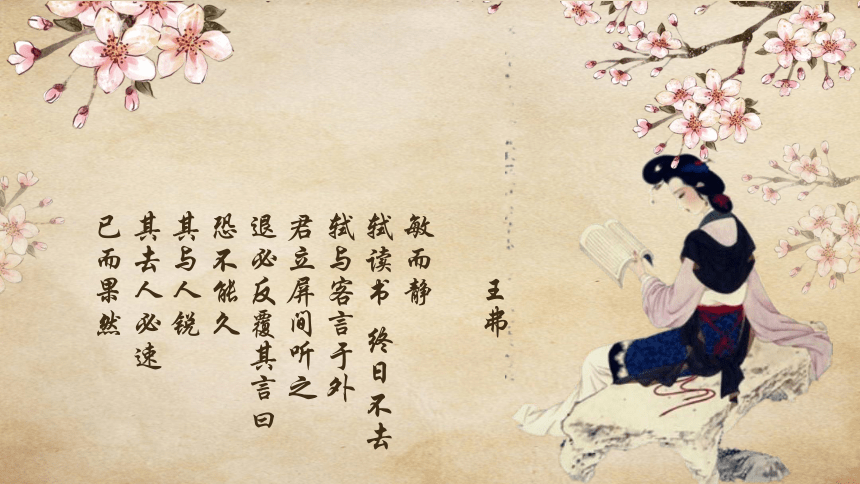 王弗
敏而静
轼读书 终日不去
轼与客言于外
君立屏间听之
退必反覆其言曰
恐不能久
其与人锐
其去人必速
已而果然